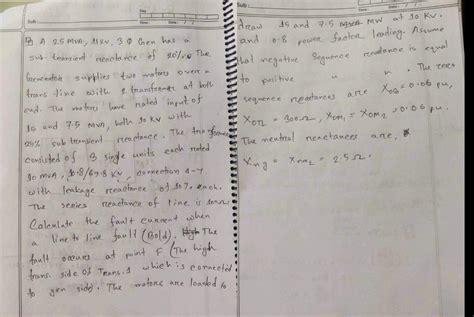 Date
Sub:
Q) A 25 MVA, 11KV, 3 Ø Gen has a
sub transient reactance of 20%. The
Generator supplies two motors over a
trans line with 2 transformer at both
end. The motors have rated input of
15 and 7.5 MVA, both 10 KV with
25% sub transient reactance. The transformer
consisted of 3 single units each rated
10 MVA, 10.8/69.8 KV, connection Δ-Y
with leakage reactance of 10% each.
The series reactance of line is 100Ω.
Calculate the fault current when
a line to line fault (Bold). The
fault occurs at point F (The high
trans. side of Trans. 1 which is connected
to gen side). The motors are loaded to
Sub:
draw 15 and 7.5 MW at 10 KV.
and 0.8 power factor leading. Assume
that negative sequence reactance is equal
to positive " " . The zero
sequence reactances are X0G = 0.06 pu,
X0TL = 300Ω, X0M1 = X0M2 = 0.06 pu.
The neutral reactances are,
Xng = Xnm2 = 2.5Ω.